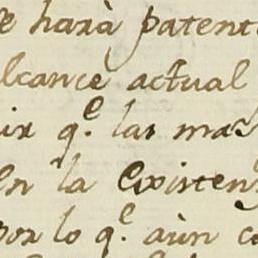 e hará patent
lcance actual
ir qᵉ. las mas
en la Existen
por lo qᵉ. aún c